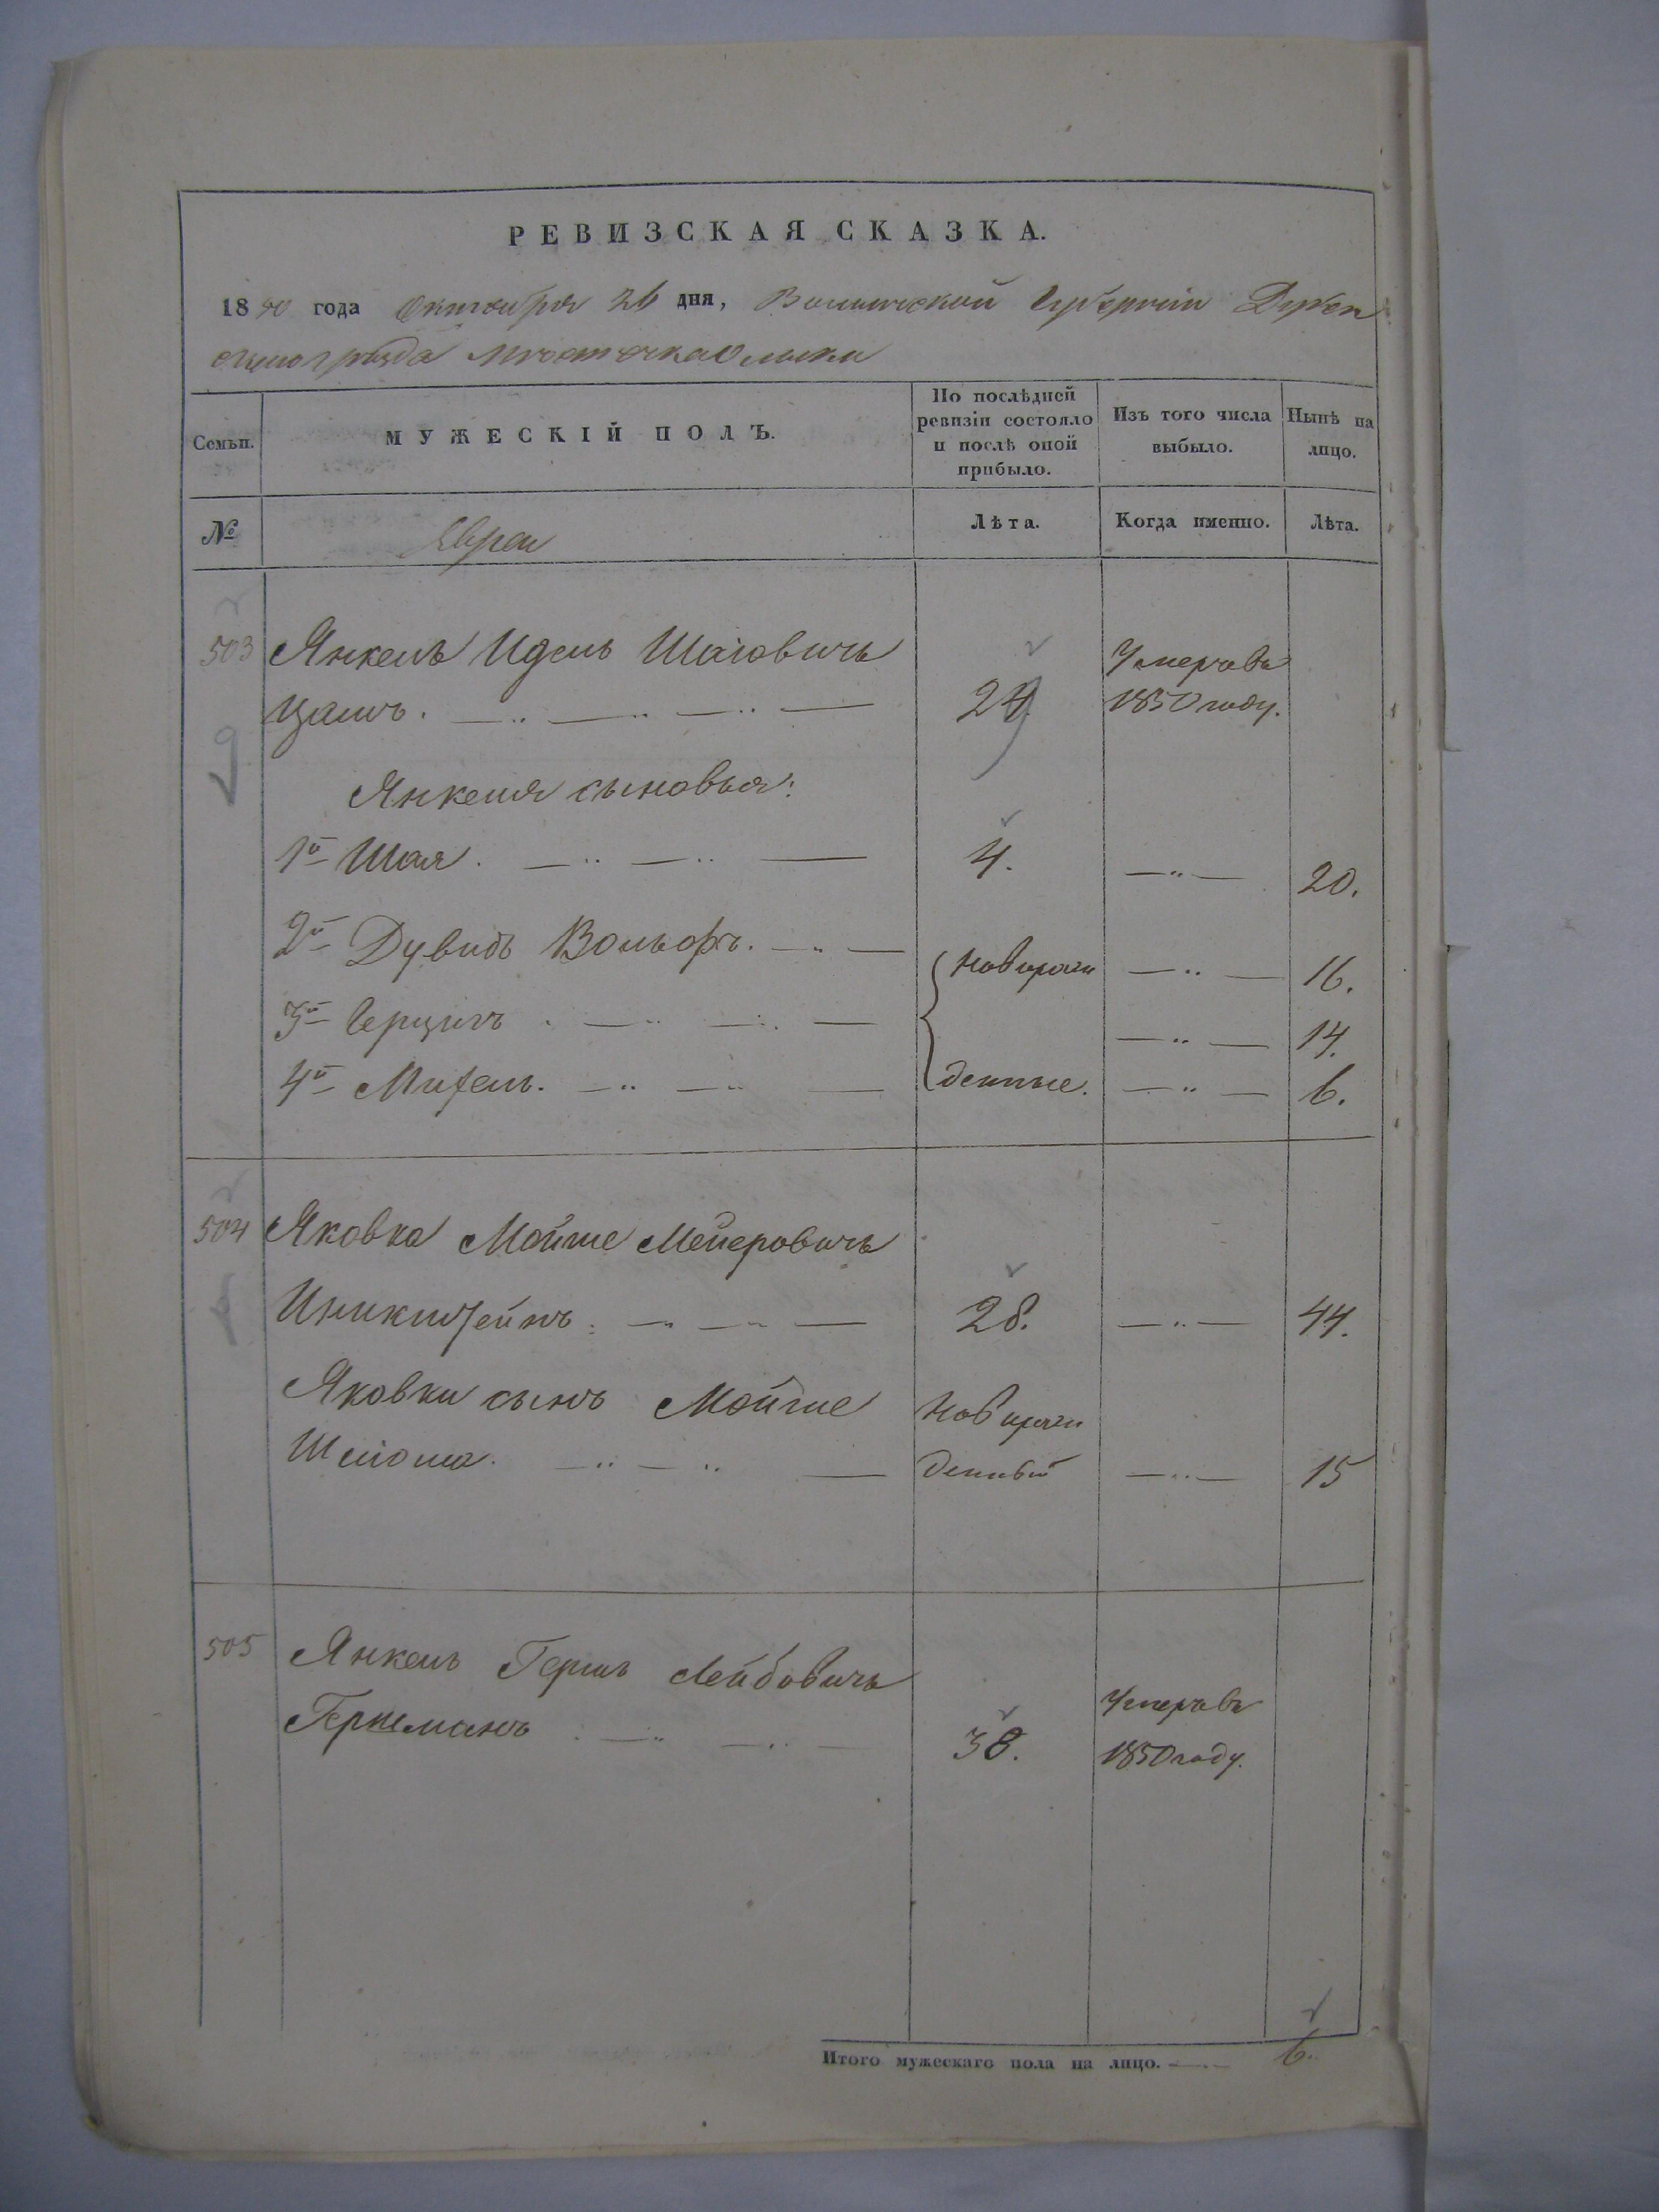 РЕВИЗСКАЯ СКАЗКА.
1850 года Октября 26 дня, Волынской Губерніи Дубен
скаго уѣзда мѣстечка Олыки
Семьи.
МУЖЕСКІЙ ПОЛЪ.
По послѣдней ревизіи состояло и послѣ оной прибыло.
Изъ того числа выбыло.
Нынѣ на лицо.
№
Евреи
Лѣта.
Когда именно.
Лѣта.
503 Янкель Идель Шаіовичь Умеръ въ
Цамъ. 24. 1850 году.
Янкеля сыновья:
1й Шая. 4. 20.
2й Дувидъ Вольфъ. Новорож 16.
3й Герцигъ 14.
4й Михель. денные. 6.
504 Яковка Мойше Мейеровичь
28. 44.
Яковки сынъ Мойше Новорож
Шліома. денный 15
505 Янкель Гершъ Лейбовичь Умеръ въ
38. 1850 году.
Итого мужескаго пола на лицо. 6.